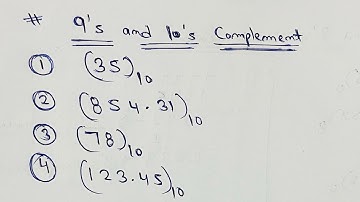 # 9's and 10's Complement
① (35)₁₀
② (854.31)₁₀
③ (78)₁₀
④ (123.45)₁₀